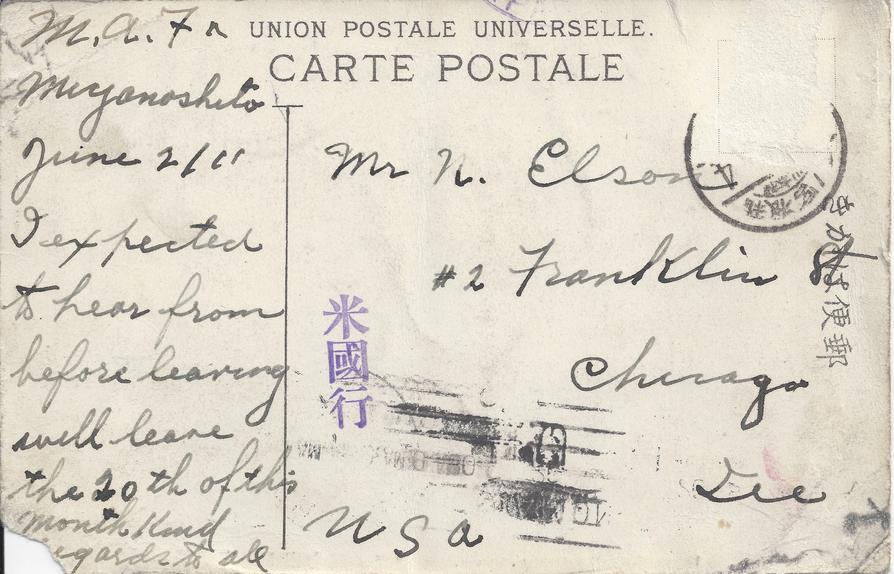 UNION POSTALE UNIVERSELLE.
CARTE POSTALE
Miyanoshita
June 2/11
I expected
to hear from
before leaving
will leave
the 20th of this
month Kind
regards to all
Mr N. Elson
#2 Franklin St
Chicago
Ill
USA
米國行
きかは便郵